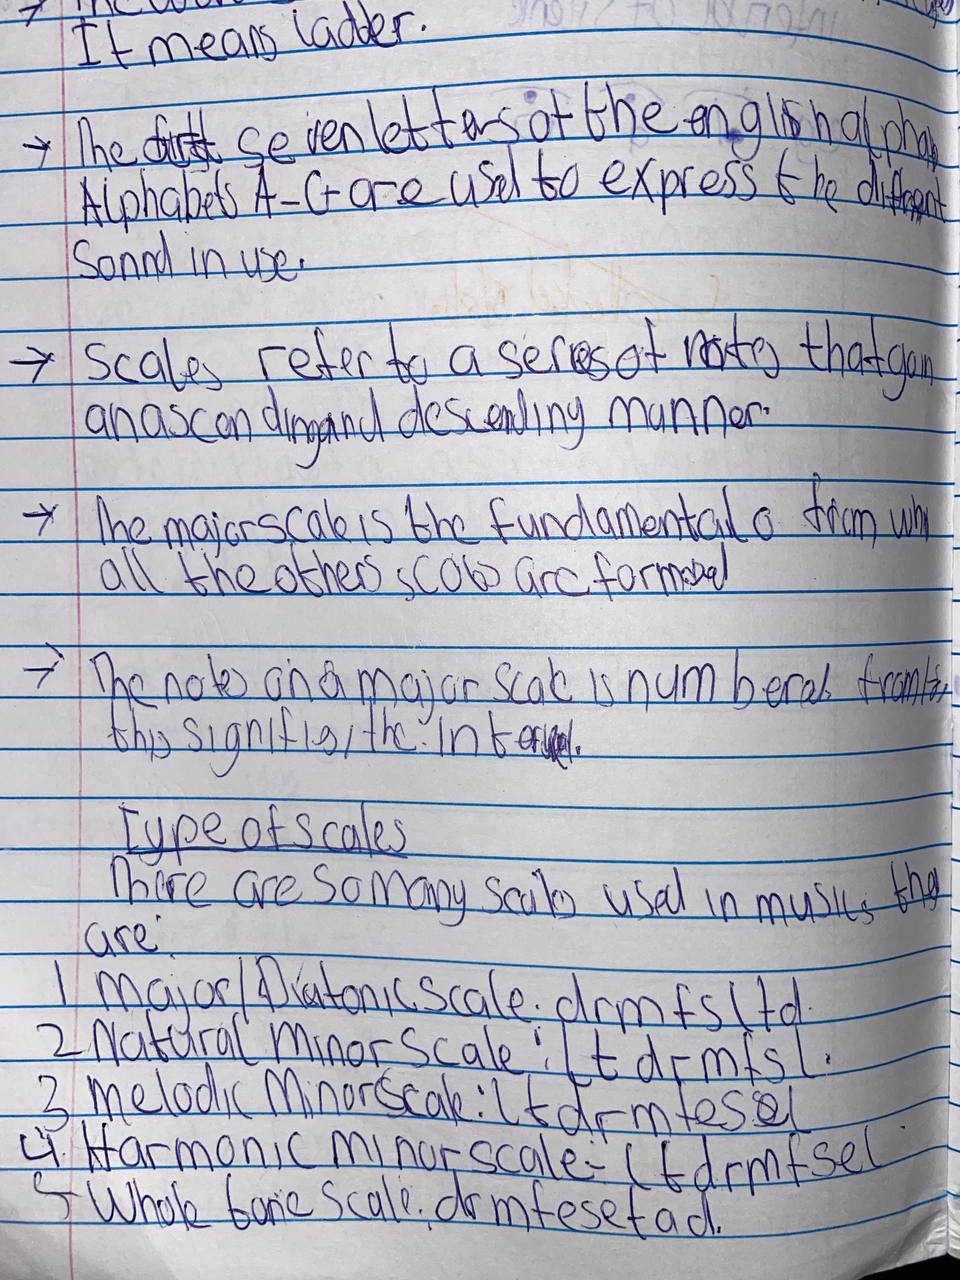 It means ladder.
→ The seven letters of the english alphab
Alphabets A-G are used to express the different
Sonnd in use.
→ Scales refer to a series of notes that go in
an ascending and descending manner.
→ The major scale is the fundamental o from whi
all the others scales are formed
→ The notes on a major scale is numbered from
this signifies the interval.
Type of scales
There are so many scales used in music, they
are:
1 Major/Diatonic Scale: drmfsltd.
2 Natural Minor Scale: ltdrmfsl.
3 Melodic Minor Scale: ltdrmfesel
4. Harmonic minor scale:- ltdrmfsel
5 Whole tone scale: drmfesetad.